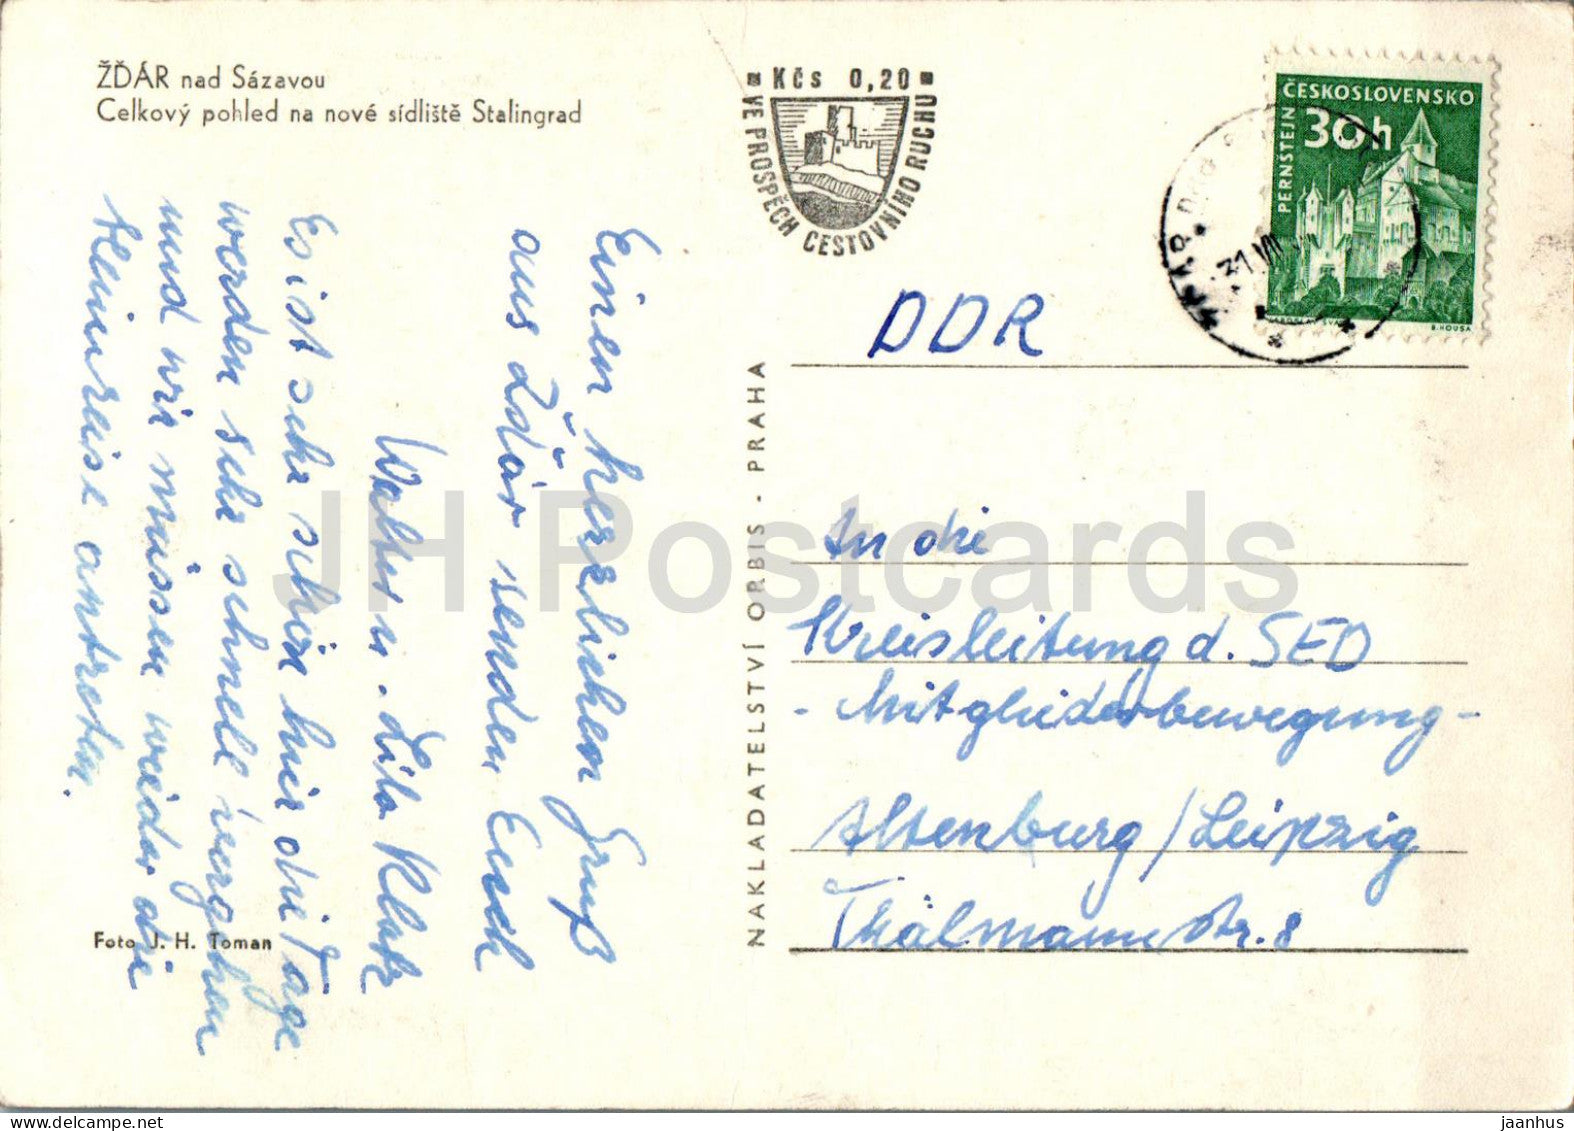 ŽĎÁR nad Sázavou
Celkový pohled na nové sídliště Stalingrad
Einen herzlichen Gruß
aus Žďár senden Euch
Walter u.
Es ist sehr schön hier die Tage
werden sehr schnell vergehen
und wir müssen wieder die
Heimreise antreten.
Foto J. H. Toman
NAKLADATELSTVÍ ORBIS - PRAHA
Kčs 0,20
VE PROSPĚCH CESTOVNÍHO RUCHU
ČESKOSLOVENSKO
30h
PERNŠTEJN
B. HOUSA
31 VII
DDR
An die
Kreisleitung d. SED
- Mitgliederbewegung -
Altenburg / Leipzig
Thälmannstr. 8
JH Postcards
delcampe.net
jaanhus